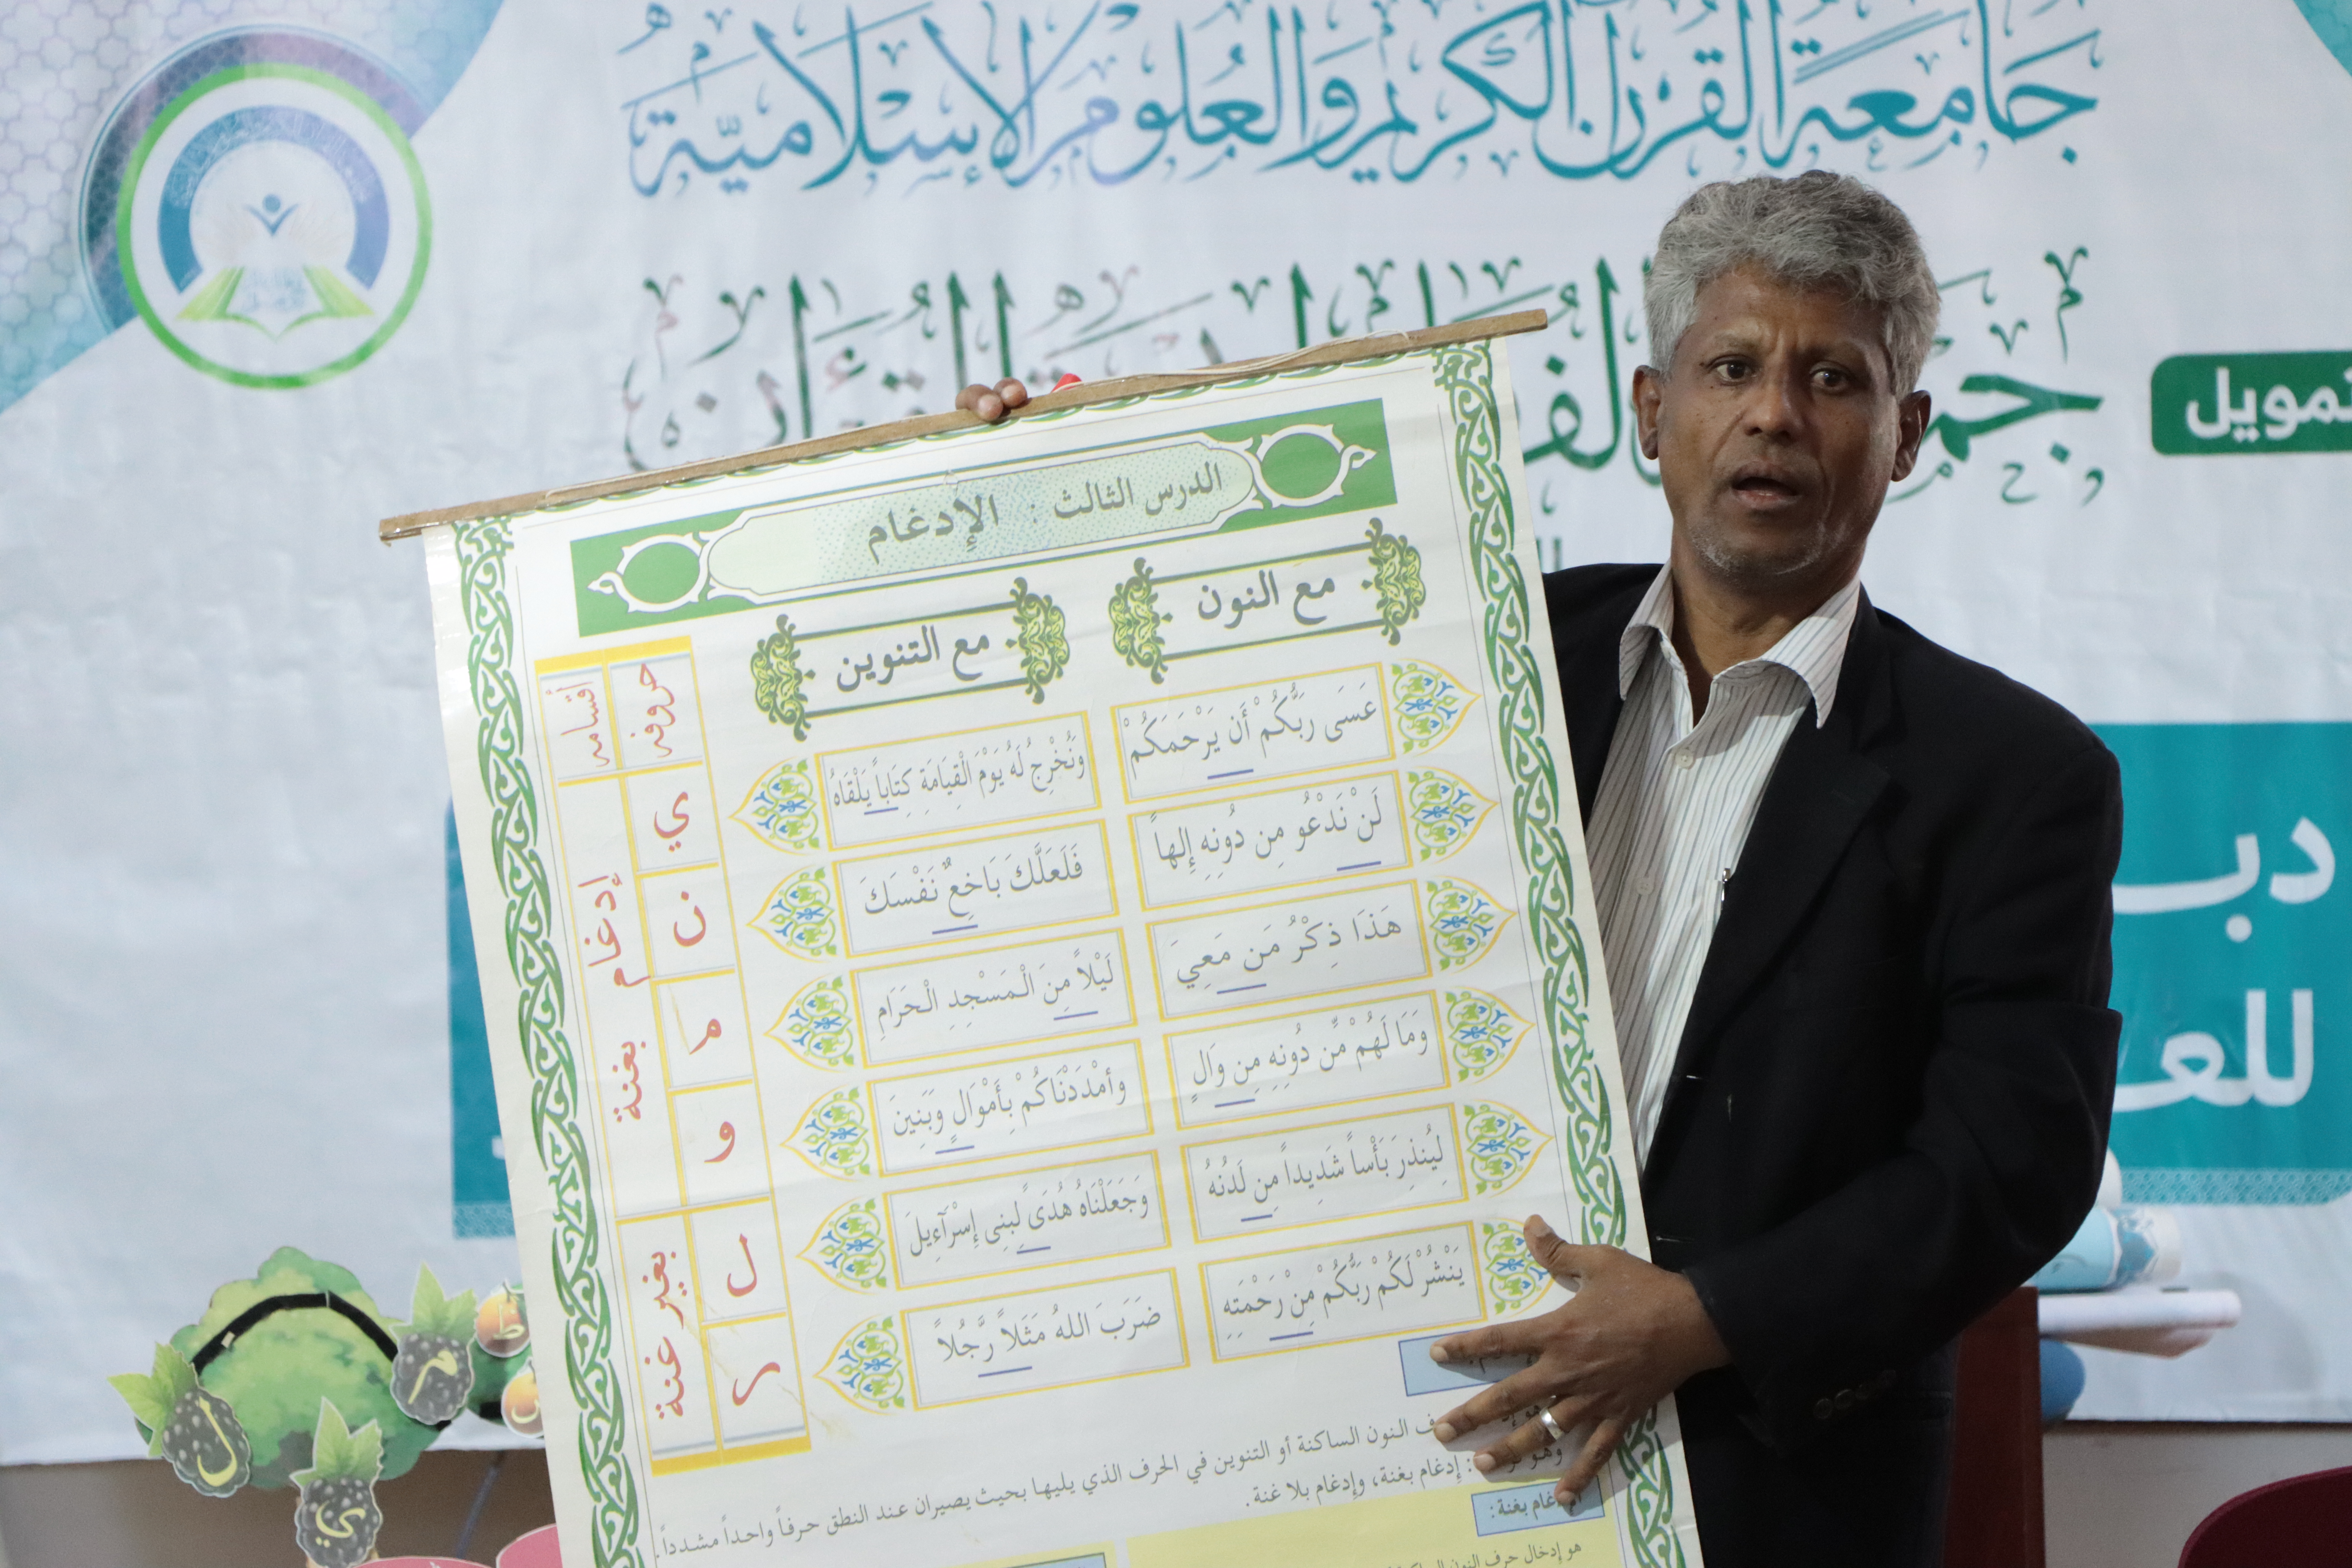 جَامِعَةُ القُرآن الكَريْم وَالعُلومِ الإسْلَاميَّة
القُرْآن
تمويل
الدرس الثالث : الإدغام
مع النون
مع التنوين
حروفه
أقسامه
عَسَى رَبُّكُمْ أَن يَرْحَمَكُمْ
وَنُخْرِجُ لَهُ يَوْمَ الْقِيَامَةِ كِتَاباً يَلْقَاهُ
ي
لَنْ نَدْعُو مِن دُونِهِ إِلهاً
فَلَعَلَّكَ بَاخِعٌ نَفْسَكَ
ن
إدغام بغنة
هَذَا ذِكْرُ مَن مَعِيَ
لَيْلاً مِنَ الْمَسْجِدِ الْحَرَامِ
م
وَمَا لَهُمْ مِّن دُونِهِ مِن وَالٍ
وأمْدَدْنَاكُمْ بِأَمْوَالٍ وَبَنِينَ
و
لِيُنذِرَ بَأْساً شَدِيداً مِن لَدُنْهُ
وَجَعَلْنَاهُ هُدَىً لِبَنِى إِسْرَآءِيلَ
ل
بغير غنة
يَنْشُرْ لَكُمْ رَبُّكُمْ مِنْ رَحْمَتِهِ
ضَرَبَ اللهُ مَثَلاً رَّجُلاً
ر
النون الساكنة أو التنوين في الحرف الذي يليها بحيث يصيران عند النطق حرفاً واحداً مشدداً.
إدغام بغنة، وإدغام بلا غنة.
بغنة:
هو إدخال حرف النون
دبـ
للعـ
م
ل
ي
ط